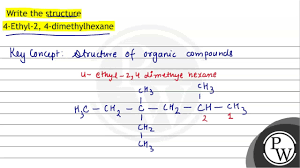 Write the structure
4-Ethyl-2, 4-dimethylhexane
Key Concept: Structure of organic compounds
4-ethyl-2,4 dimethye hexane
CH3 CH3
H3C-CH2-C-CH2-CH-CH3
2 1
CH2
CH3
PW